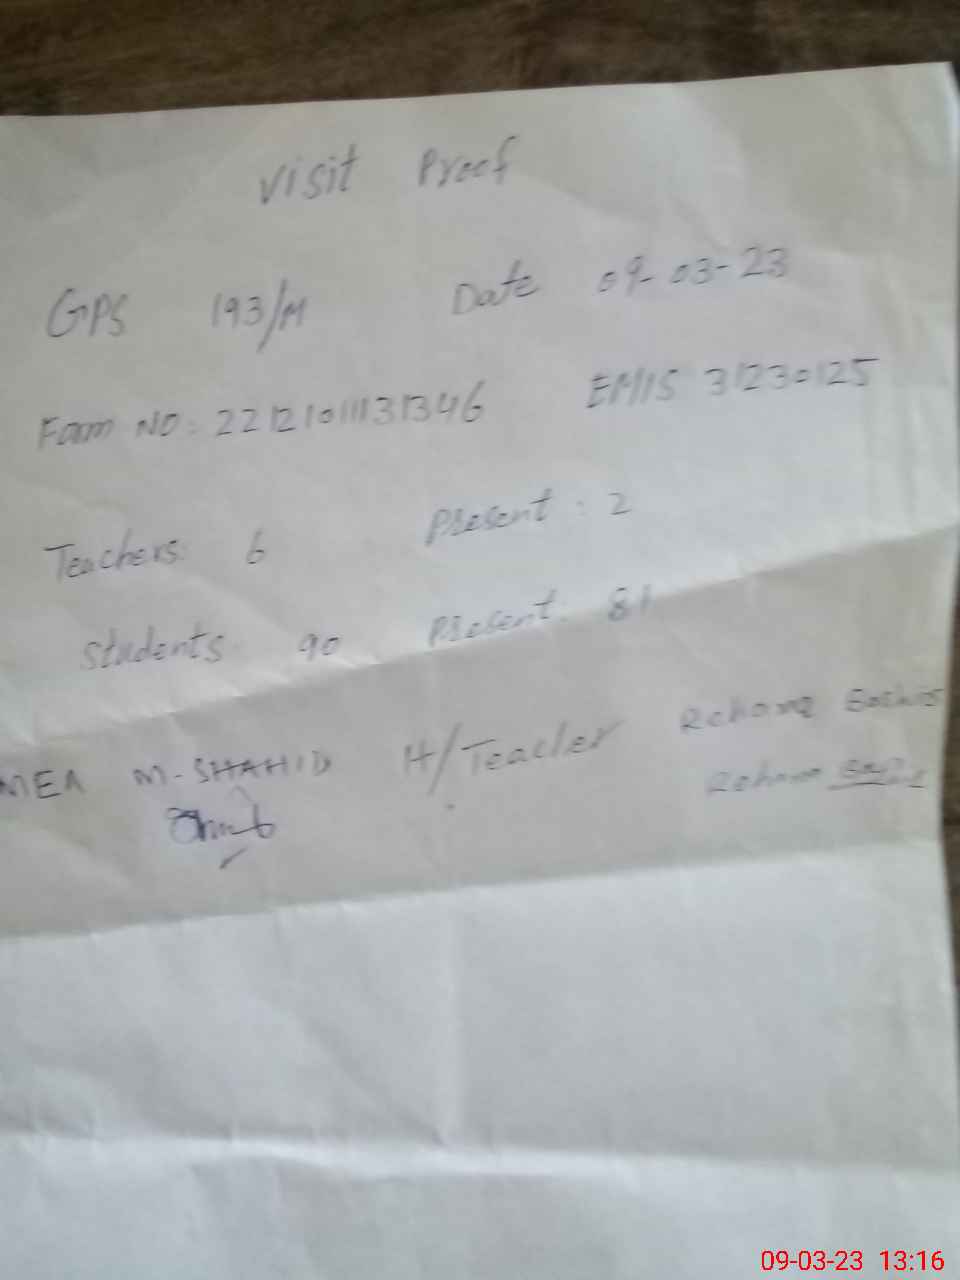 Visit Proof
GPS 193/M Date 09-03-23
Foam NO: 22121011131346 EMIS 31230125
Teachers: 6 Present: 2
Students: 90 Present: 81
MEA M-SHAHID H/Teacher Rehana
Rehana
09-03-23 13:16